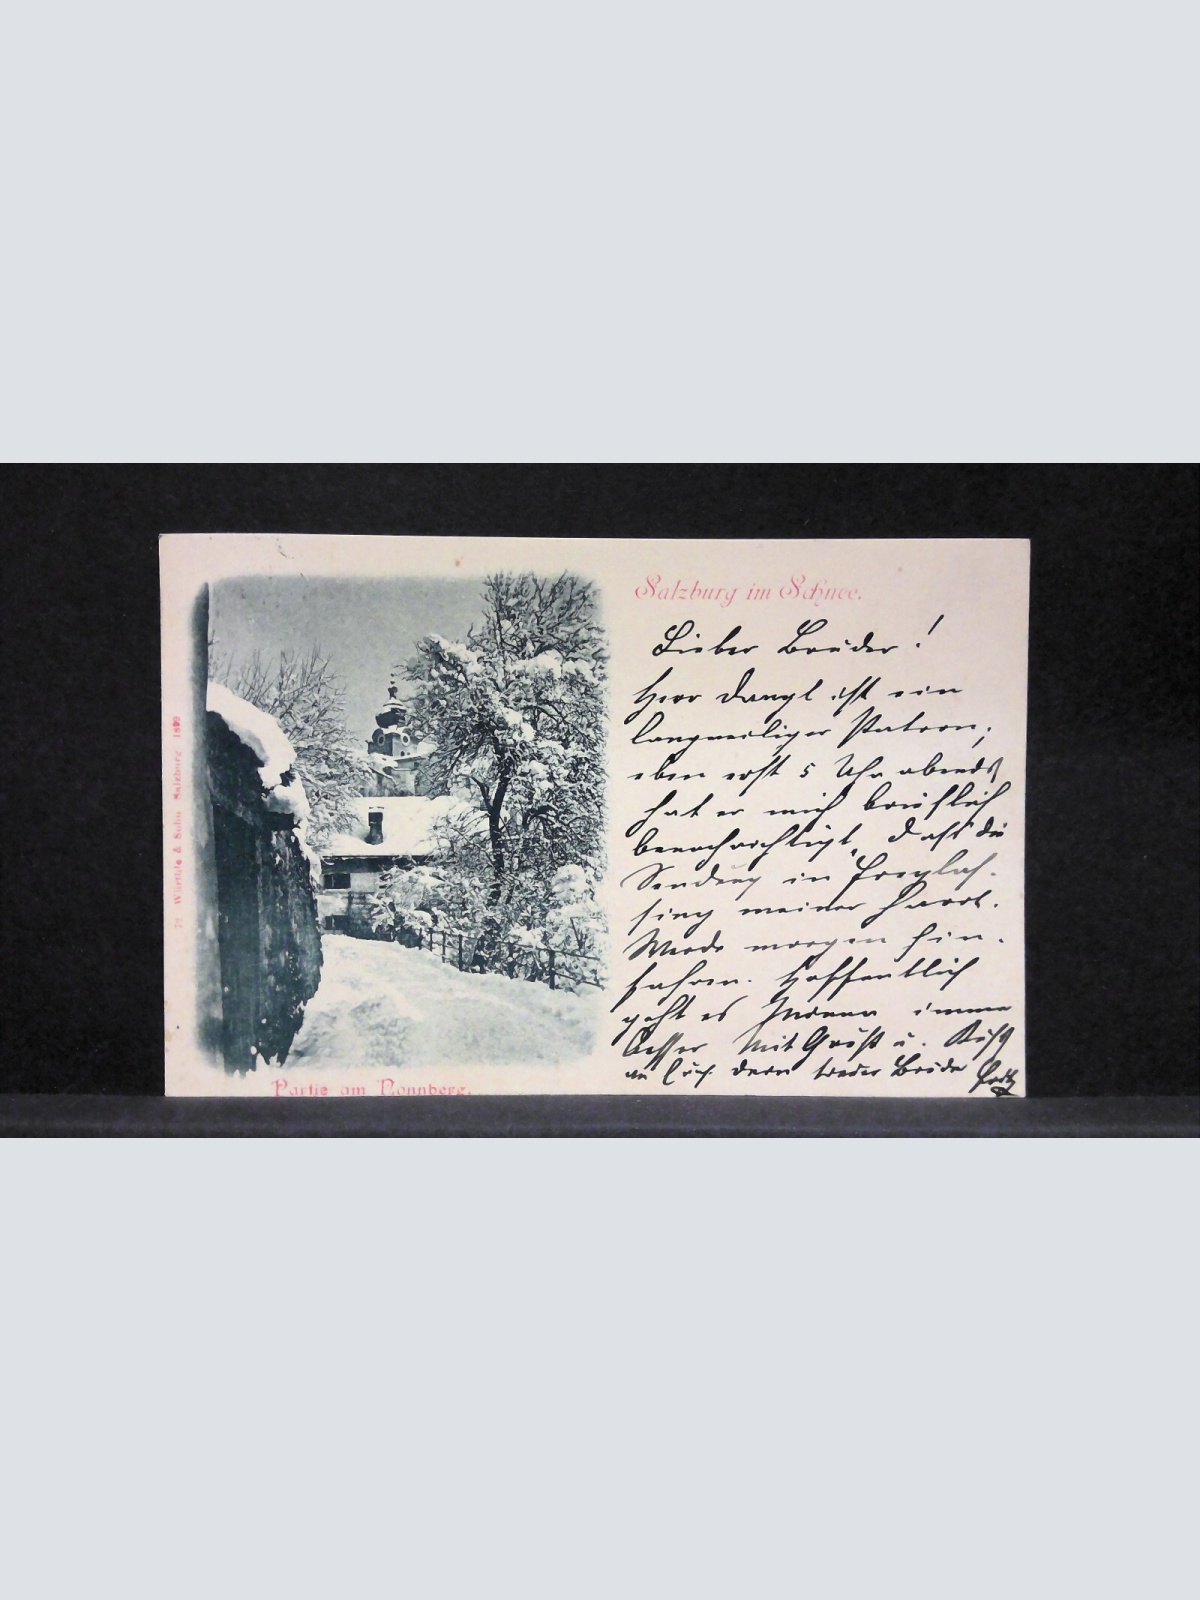 Salzburg im Schnee.
Lieber Bruder!
Herr Dangl ist ein
langweiliger Patron;
eben erst 5 Uhr abends
hat er mich brieflich
benachrichtigt, daß die
Sendung in Freylas-
sing meiner harrt.
Werde morgen hin-
fahren. Hoffentlich
geht es immer
besser Mit Gruß u. Kuß
an Euch Dein treuer Bruder Fritz
Partie am Nonnberg.
72 Würthle & Sohn Salzburg 1899